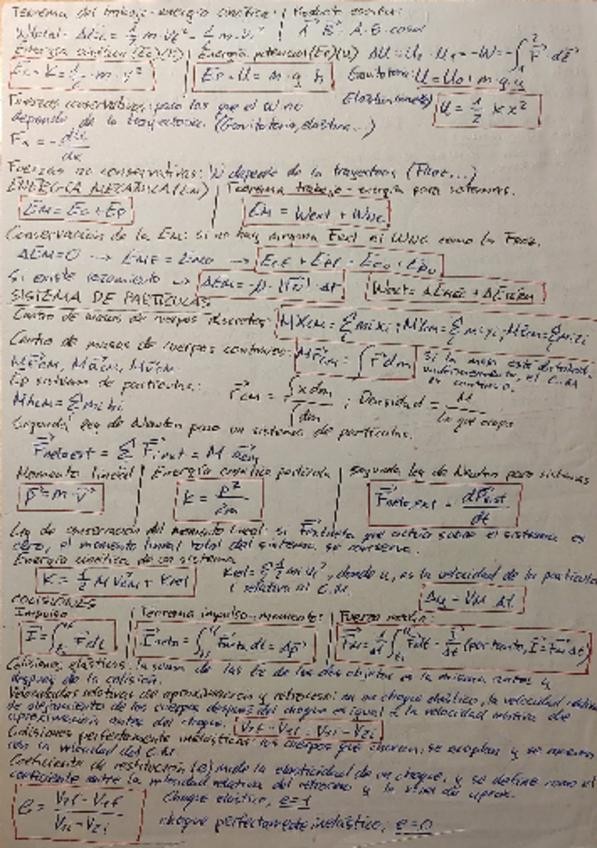 Teorema del trabajo-energía cinética: | Producto escalar:
Wtotal = ΔEc = 1/2 m·Vf² - 1/2 m·Vi² | A·B = A·B·cosα
Energía cinética (Ec)(K) | Energía potencial (Ep)(U) ΔU = U2 - U1 = -W = -∫₁² F dℓ
Ec = K = 1/2·m·v² | Ep = U = m·g·h Gravitatoria: U = U0 + m·g·y
Fuerzas conservativas: para las que el W no U = 1/2 k x²
depende de la trayectoria. (Gravitatoria, elástica...)
Fx = -dU/dx
Fuerzas no conservativas: W depende de la trayectoria (Froz...)
ENERGÍA MECÁNICA (Em) | Teorema trabajo-energía para sistemas.
EM = Ec + Ep | EM = Wext + Wnc
Conservación de la EM: si no hay ninguna Fext ni Wnc como la Froz.
ΔEM=0 → EMF = EM0 → Ecf + Epf = Ec0 + Ep0
Si existe rozamiento →
SISTEMA DE PARTÍCULAS
Centro de masas de cuerpos discretos: MXcm = Σ mi xi ;
Centro de masas de cuerpos continuos: M rcm = ∫ r dm si la masa está
Ep sistema de partículas: rcm = ∫x dm / ∫dm ; Densidad = M / lo que ocupa
Mhcm = Σ mi hi
Segunda ley de Newton para un sistema de partículas.
Fneta ext = Σ Fi ext = M acm
Momento lineal | Energía cinética partícula | Segunda ley de Newton para sistemas
p = m·v | K = p²/2m | Fneta,ext = dPsist/dt
Ley de conservación del momento lineal: si Fext neta que actúa sobre el sistema es
cero, el momento lineal total del sistema se conserva.
Energía cinética de un sistema
K = 1/2 M Vcm² + Krel Krel = Σ 1/2 mi ui², donde ui es la velocidad de la partícula
i relativa al C.M.
COLISIONES
Impulso | Teorema impulso-momento: | Fuerza media:
I = ∫ F dt | Ineto = ∫ Fneta dt = Δp | Fm = 1/Δt ∫ F dt = I/Δt (por tanto, I = Fm Δt)
Colisiones elásticas: la suma de las Ec de los dos objetos es la misma antes y
después de la colisión.
Velocidades relativas de aproximación y retroceso: en un choque elástico, la velocidad relativa
de alejamiento de los cuerpos después del choque es igual a la velocidad relativa de
aproximación antes del choque.
Colisiones perfectamente inelásticas: los cuerpos que chocan, se acoplan y se mueven
con la velocidad del C.M.
Coeficiente de restitución (e): mide la elasticidad de un choque, y se define como el
coeficiente entre la velocidad relativa del retroceso y la de aprox.
Choque elástico, e=1
choque perfectamente inelástico, e=0